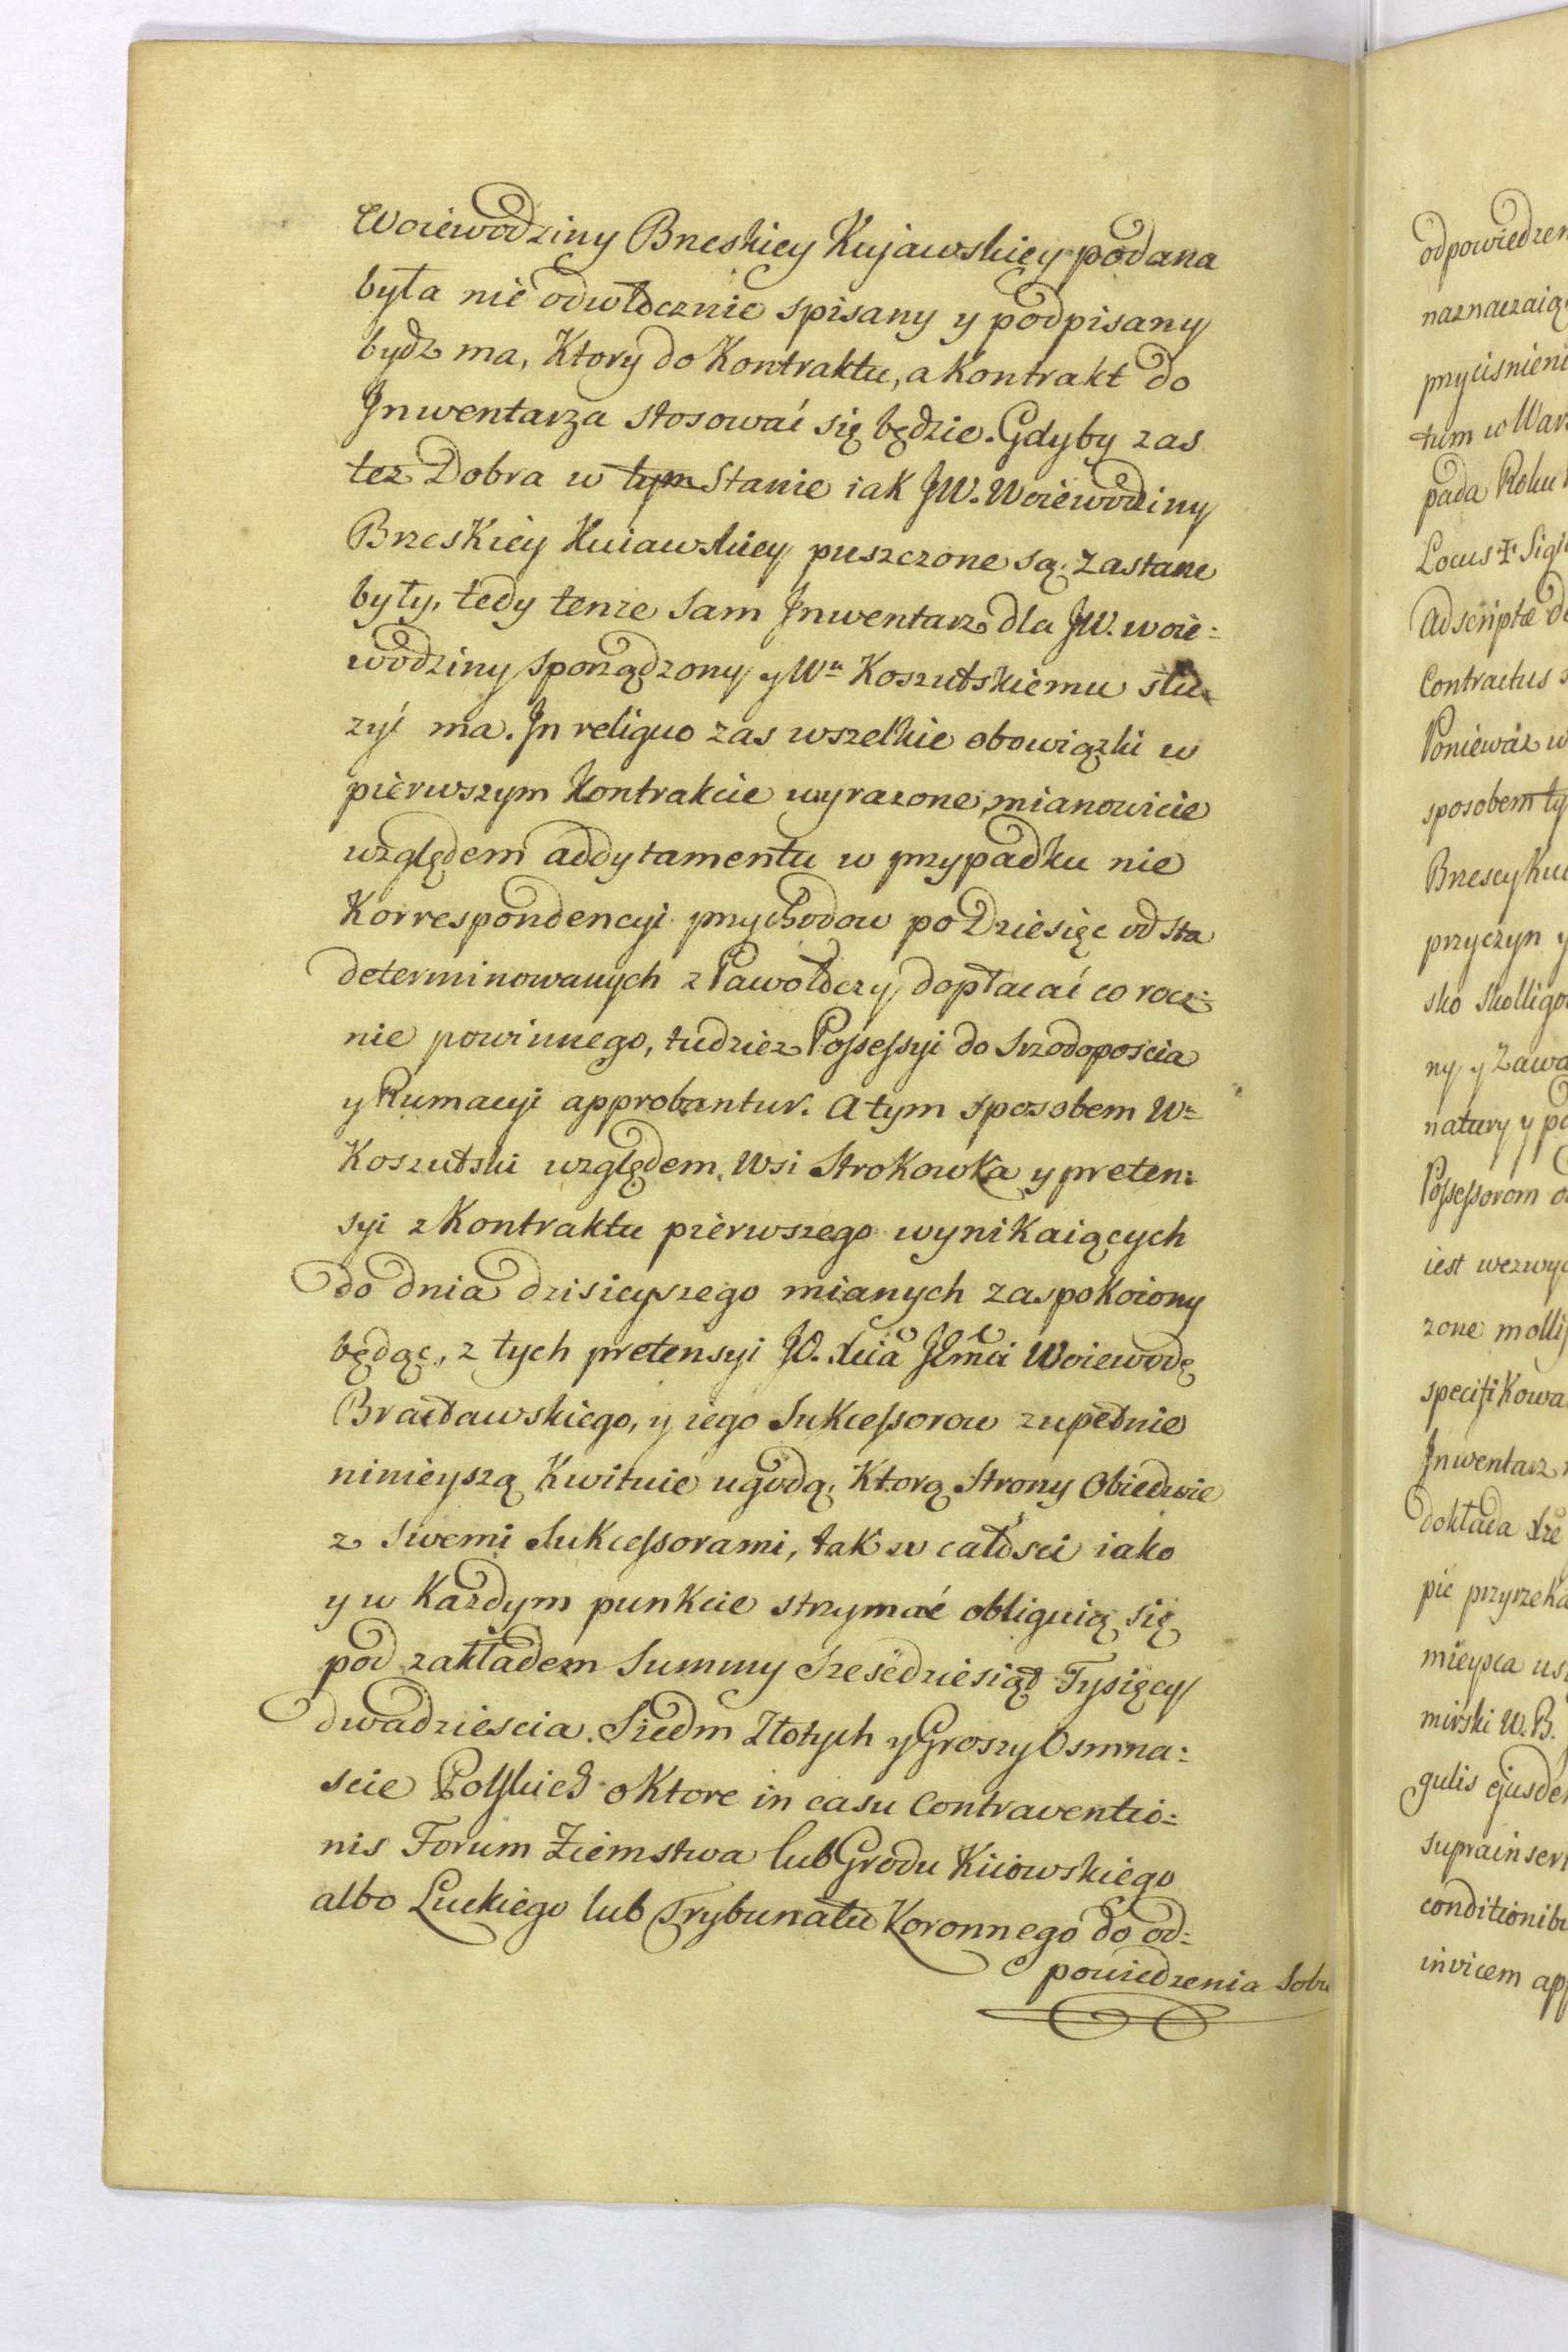 Woiewodziny Brzeskiey Kujawskiey podana
była nie odwłocznie spisany y podpisany
bydz ma, Ktory do Kontraktu, a Kontrakt do
Jnwentarza stosować się będzie. Gdyby zas
tez Dobra w tym Stanie iak JW. Woiewodziny
Brzeskiey Kuiawskiey puszczone są, zastane
były, tedy tenze Sam Jnwentarz dla JW. woie=
wodziny sporządzony y Wu Koszutskiemu słu=
zyć ma. Jn reliquo zas wszelkie obowiązki w
pierwszym Kontrakcie wyrazone, mianowicie
względem addytamentu w przypadku nie
Korrespondencyi przychodow po Dziesięc od sta
determinowanych z Pawołoczy dopłacać co rocz=
nie powinnego, tudziez Possessyi do Srzodoposcia
y Rumacyi approbantur. A tym sposobem W=
Koszutski względem Wsi Strokowka y preten=
syi z Kontraktu pierwszego wynikaiących
do dnia dzisieyszego mianych zaspokoiony
będąc, z tych pretensyi JO. Xcia Jmci Woiewodę
Bracławskiego, y iego Sukcessorow zupełnie
ninieyszą Kwituie ugodą, Ktorą Strony Obiedwie
z Swemi Sukcessorami, tak w całości iako
y w Kazdym punkcie strzymać obliguią się
pod zakładem Summy Szescdziesiąt Tysięcy
dwadziescia Siedm Złotych y Groszy Osmna=
scie Polskich o Ktore in casu Contraventio=
nis Forum Ziemstwa lub Grodu Kiiowskiego
albo Łuckiego lub Trybunału Koronnego do od=
powiedzenia Sobie
odpowiedzen
naznaczaią
przycisnieni
tum w Wars
pada Roku
Locus Sigi
Adscriptæ de
Contractus s
Poniewaz w
sposobem ty
Brzescy Kui
przyczyn y
sko Skolligo
ny y Zawa
natury y po
Possessorom o
iest wezwy
zone molli
specifikowa
Jnwentarz
dokłada Xze
pic przyrzeka
mieysca us
mirski W. B.
gulis ejusde
suprainser
conditionibu
invicem app